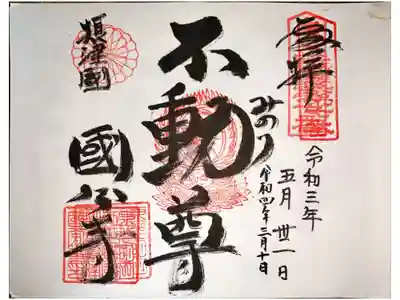 奉拝
令和三年
五月廿一日
みのり
令和四年三月十日
不動尊
摂津國
國分寺